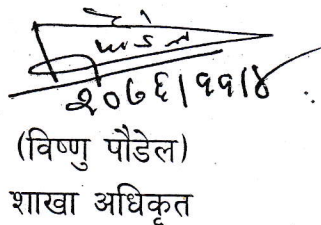 पौडेल
२०७६।११।४
(विष्णु पौडेल)
शाखा अधिकृत